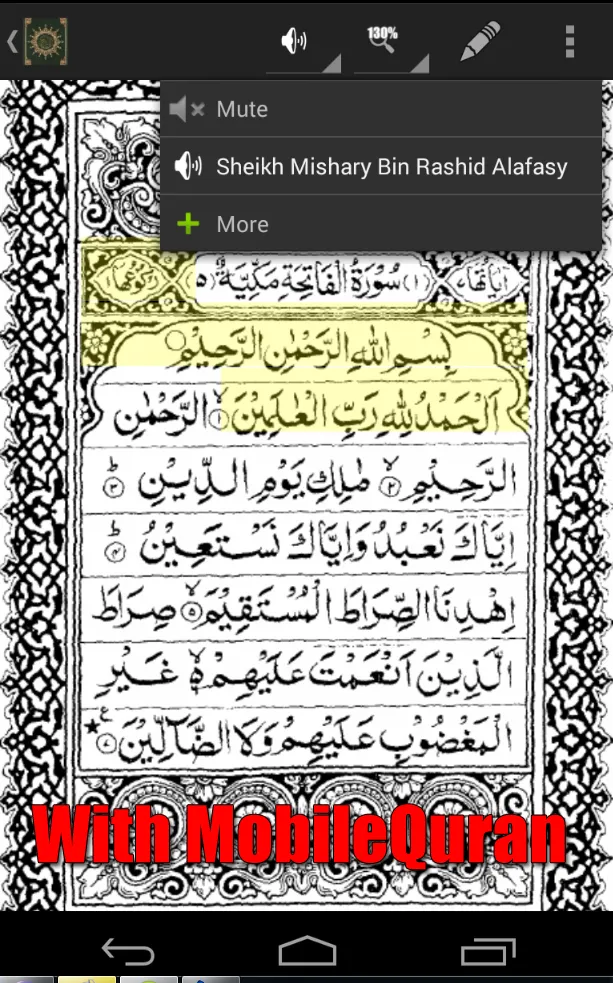 130%
Mute
Sheikh Mishary Bin Rashid Alafasy
More
اٰيَاتُهَا ٧ (١) سُوْرَةُ الْفَاتِحَةِ مَكِّيَّةٌ (٥) رُكُوْعُهَا ١
بِسْمِ اللّٰهِ الرَّحْمٰنِ الرَّحِيْمِ
اَلْحَمْدُ لِلّٰهِ رَبِّ الْعٰلَمِيْنَ ۙ﴿١﴾ الرَّحْمٰنِ
الرَّحِيْمِ ۙ﴿٢﴾ مٰلِكِ يَوْمِ الدِّيْنِ ؕ﴿٣﴾
اِيَّاكَ نَعْبُدُ وَاِيَّاكَ نَسْتَعِيْنُ ؕ﴿٤﴾
اِهْدِنَا الصِّرَاطَ الْمُسْتَقِيْمَ ۙ﴿٥﴾ صِرَاطَ
الَّذِيْنَ اَنْعَمْتَ عَلَيْهِمْ ۙ۬ۦ غَيْرِ
الْمَغْضُوْبِ عَلَيْهِمْ وَلَا الضَّآلِّيْنَ ﴿٧﴾ ع
With MobileQuran